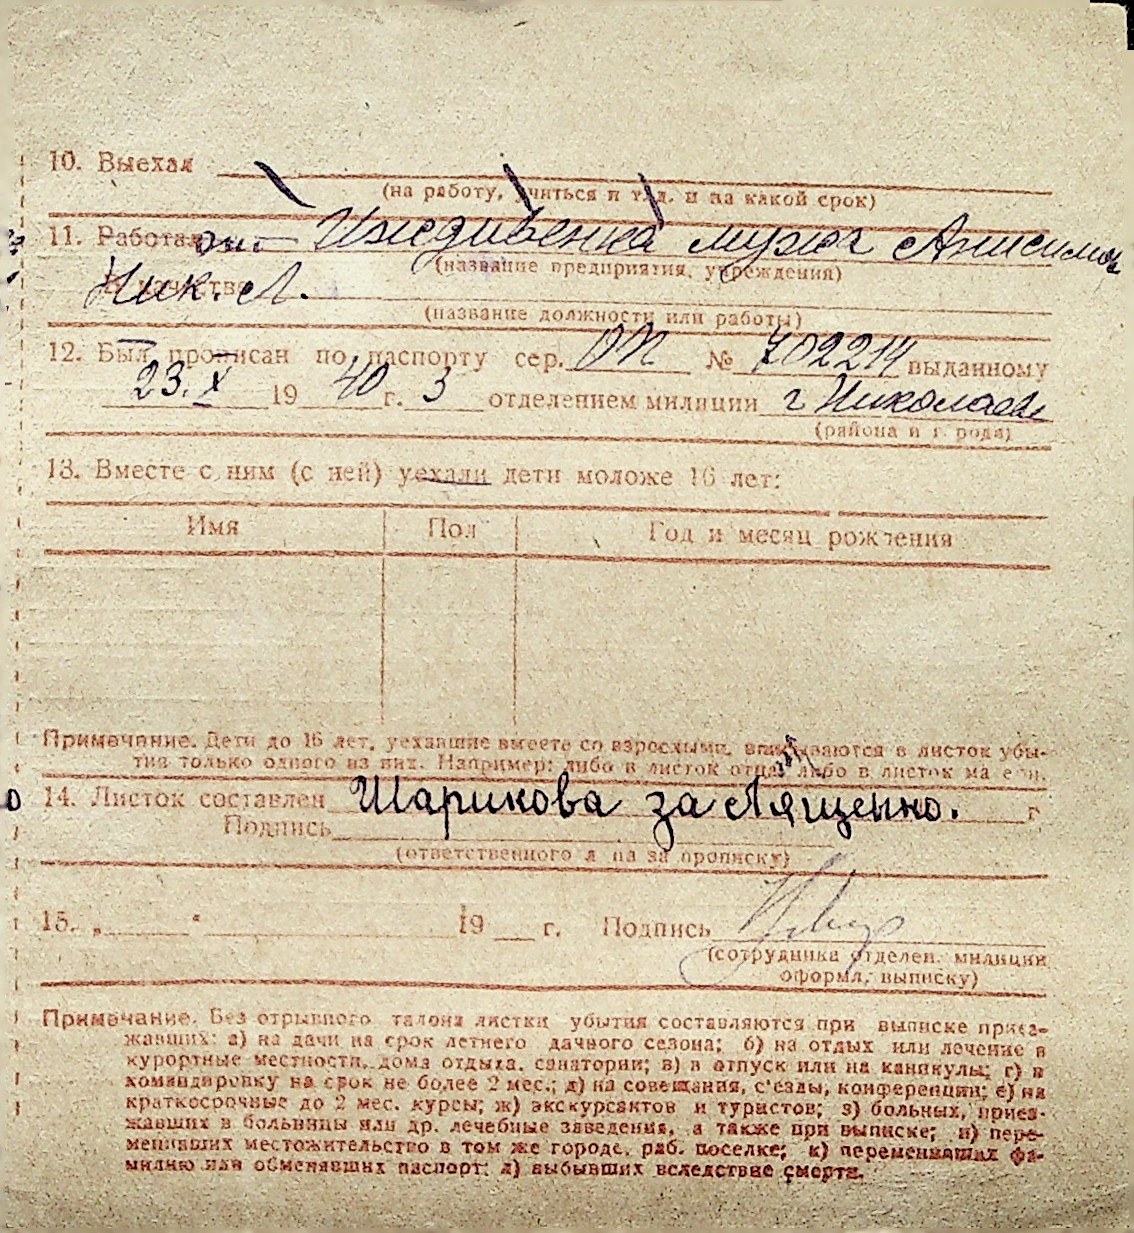 10. Выехал
(на работу, учиться и т. д. и на какой срок)
11. Работал Иждивенка мужа Анисимов
(название предприятия, учреждения)
В качестве Ник. А.
(название должности или работы)
12. Был прописан по паспорту сер. ОП № 702214 выданному
23.X 1940 г. 3 отделением милиции г Николаев
(района и города)
13. Вместе с ним (с ней) уехали дети моложе 16 лет:
Имя Пол Год и месяц рождения
Примечание. Дети до 16 лет, уехавшие вместе со взрослыми, вписываются в листок убы-
тия только одного из них. Например: либо в листок отца, либо в листок матери.
14. Листок составлен Шарикова за Лященко. г
Подпись
(ответственного лица за прописку)
15. „ “ 19 г. Подпись
(сотрудника отделен. милиции
оформл. выписку)
Примечание. Без отрывного талона листки убытия составляются при выписке приез-
жавших: а) на дачи на срок летнего дачного сезона; б) на отдых или лечение в
курортные местности, дома отдыха, санатории; в) в отпуск или на каникулы; г) в
командировку на срок не более 2 мес.; д) на совещания, с'езды, конференции; е) на
краткосрочные до 2 мес. курсы; ж) экскурсантов и туристов; з) больных, приез-
жавших в больницы или др. лечебные заведения, а также при выписке; и) пере-
менивших местожительство в том же городе, раб. поселке; к) переменивших фа-
милию или обменявших паспорт; л) выбывших вследствие смерти.